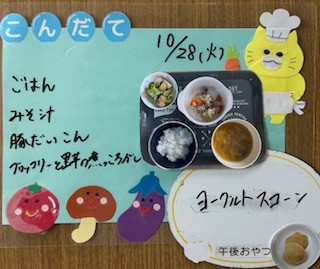 こんだて
10/28(火)
ごはん
みそ汁
豚だいこん
ブロッコリーと野菜の煮っころがし
ヨーグルトスコーン
午後おやつ